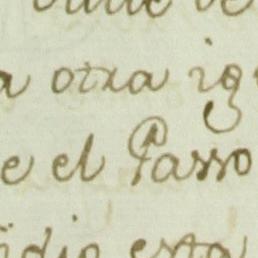 a otra ig
e el Passo
idio esta